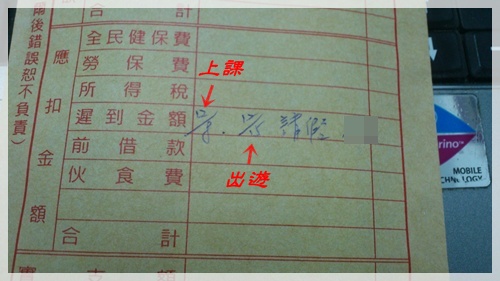 後錯誤恕不負責）
應扣金額
合計
全民健保費
勞保費
上課
所得稅
遲到金額 請假
前借款
出遊
伙食費
合計
實支額
rino™
MOBILE
TECHNOLOGY